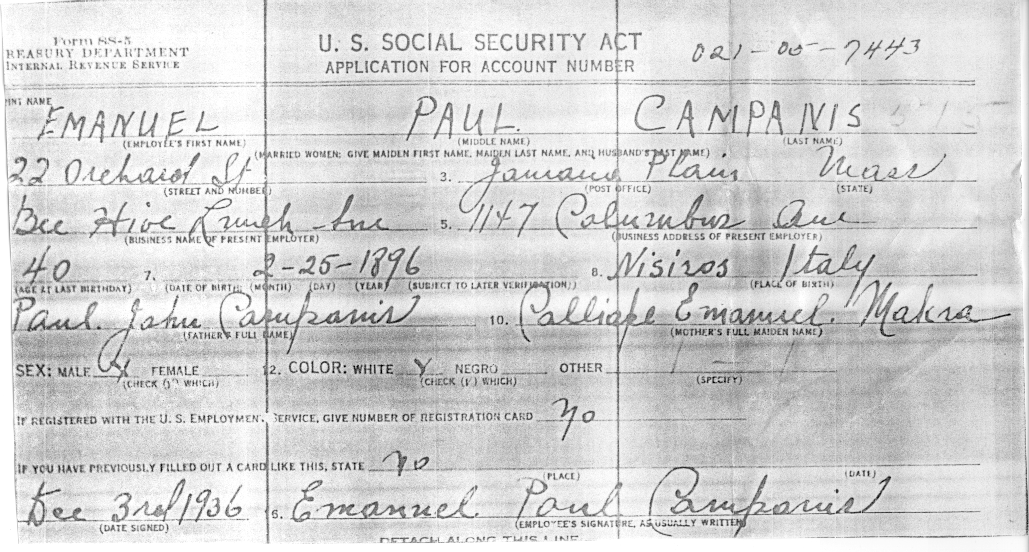 Form SS-5
REASURY DEPARTMENT
INTERNAL REVENUE SERVICE
U. S. SOCIAL SECURITY ACT
APPLICATION FOR ACCOUNT NUMBER
021-05-7443
INT NAME
EMANUEL PAUL CAMPANIS
(EMPLOYEE'S FIRST NAME) (MIDDLE NAME) (LAST NAME)
(MARRIED WOMEN: GIVE MAIDEN FIRST NAME, MAIDEN LAST NAME, AND HUSBAND'S LAST NAME)
22 Orchard St 3. Jamaica Plain Mass
(STREET AND NUMBER) (POST OFFICE) (STATE)
Bee Hive Lunch Inc 5. 1147 Columbus Ave
(BUSINESS NAME OF PRESENT EMPLOYER) (BUSINESS ADDRESS OF PRESENT EMPLOYER)
40 7. 2-25-1896 8. Nisiros Italy
(AGE AT LAST BIRTHDAY) (DATE OF BIRTH: (MONTH) (DAY) (YEAR) (SUBJECT TO LATER VERIFICATION)) (PLACE OF BIRTH)
Paul. John Campanis 10. Calliope Emanuel. Makra
(FATHER'S FULL NAME) (MOTHER'S FULL MAIDEN NAME)
SEX: MALE FEMALE 2. COLOR: WHITE NEGRO OTHER
(CHECK (√) WHICH) (CHECK (√) WHICH) (SPECIFY)
IF REGISTERED WITH THE U. S. EMPLOYMEN. SERVICE, GIVE NUMBER OF REGISTRATION CARD No
IF YOU HAVE PREVIOUSLY FILLED OUT A CARD LIKE THIS, STATE No
(PLACE) (DATE)
Dec 3rd 1936 6. Emanuel Paul Campanis
(DATE SIGNED) (EMPLOYEE'S SIGNATURE, AS USUALLY WRITTEN)
DETACH ALONG THIS LINE